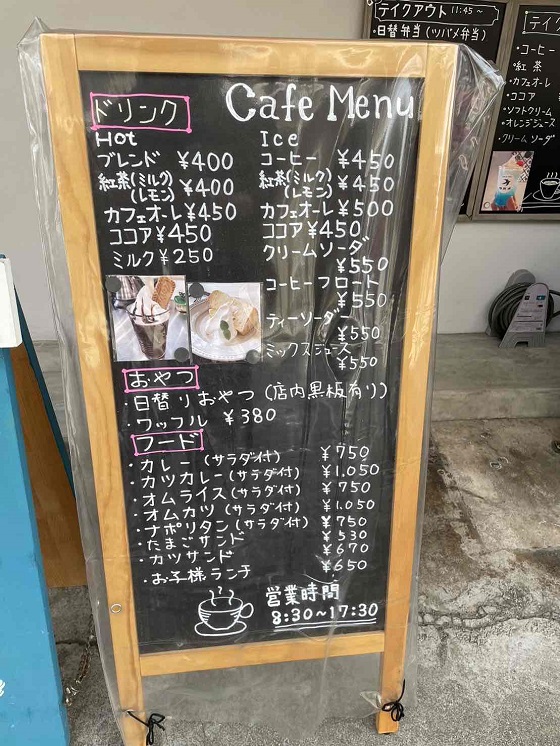 テイクアウト 11:45～
・日替弁当(ツバメ弁当)
テイク
・コーヒー
・紅茶
・カフェオーレ
・ココア
・ソフトクリーム
・オレンジジュース
・クリームソーダ
Cafe Menu
ドリンク
Hot
ブレンド ¥400
紅茶(ミルク)
(レモン) ¥400
カフェオーレ ¥450
ココア ¥450
ミルク ¥250
Ice
コーヒー ¥450
紅茶(ミルク)
(レモン) ¥450
カフェオーレ ¥500
ココア ¥450
クリームソーダ
¥550
コーヒーフロート
¥550
ティーソーダー
¥550
ミックスジュース
¥550
おやつ
・日替りおやつ(店内黒板有り)
・ワッフル ¥380
フード
・カレー(サラダ付) ¥750
・カツカレー(サラダ付) ¥1,050
・オムライス(サラダ付) ¥750
・オムカツ(サラダ付) ¥1,050
・ナポリタン(サラダ付) ¥750
・たまごサンド ¥530
・カツサンド ¥670
・お子様ランチ ¥650
営業時間
8:30～17:30